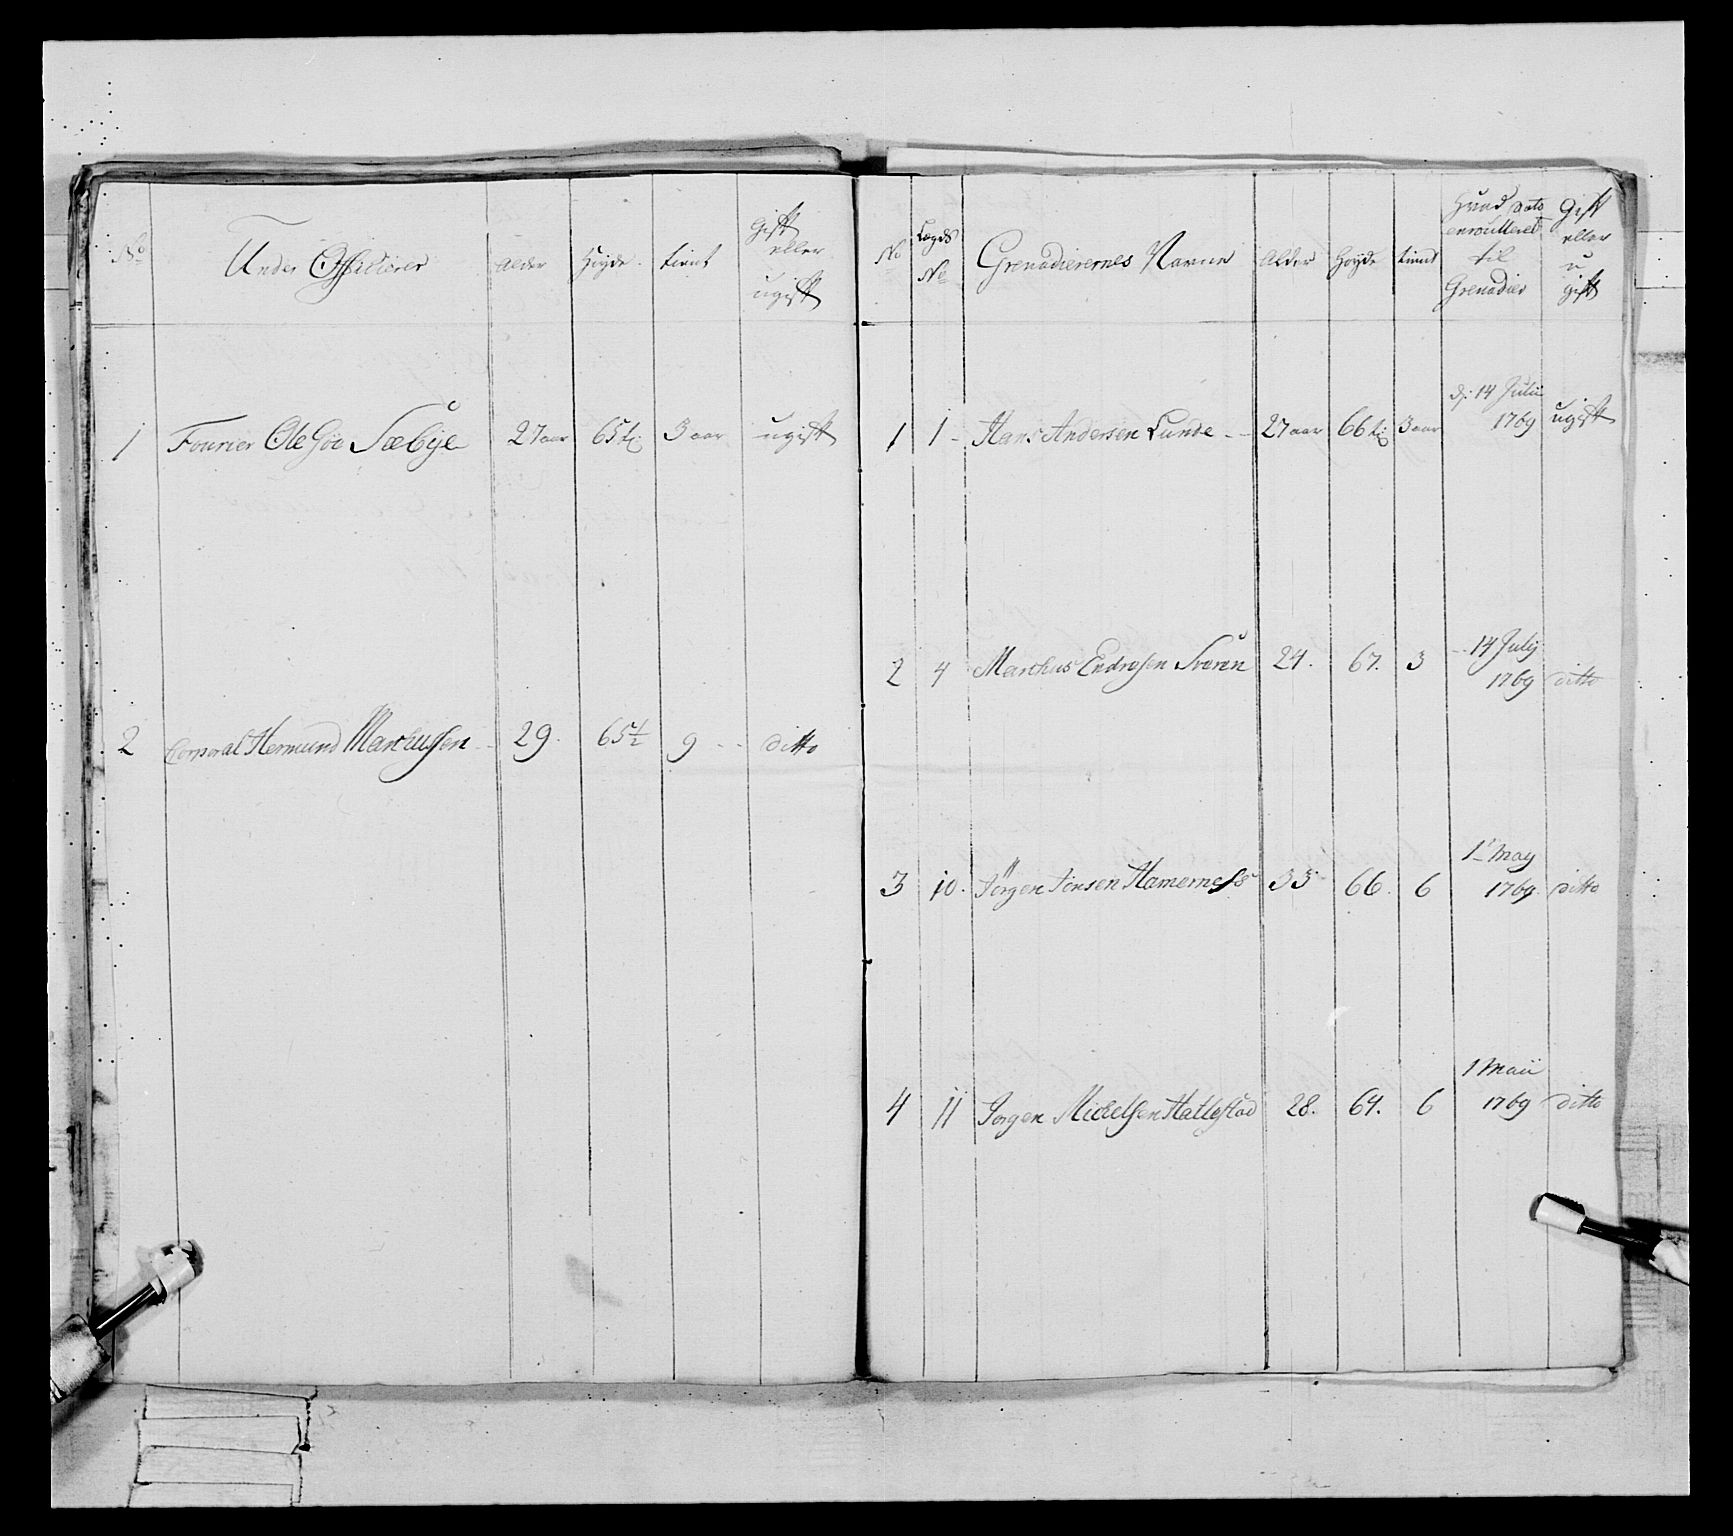 No Under Officierer Alder Høyde tient Gift eller ugift
1 Fourier Ole Sæbye 27 aar 65 t: 3 aar ugift
2 Corporal Hermund Marthussen 29. 65½ 9 ditto
No Lægds No Grenadierernes Navne Alder Høyde tient Hvad Dato enroulleret til Grenadier Gift eller u gift
1 1 Hans Andersen Lunde 27 aar 66 t: 3 aar d: 14 Julii 1769 ugift
2 4 Marthus Endresen 24. 67. 3 14 Julij 1769 ditto
3 10. Jørgen Jonsen Hamerness 33 66. 6 1 May 1769. ditto
4 11 Jørgen Mickelsen Hatlestad 28. 64. 6 1 Maii 1769 ditto